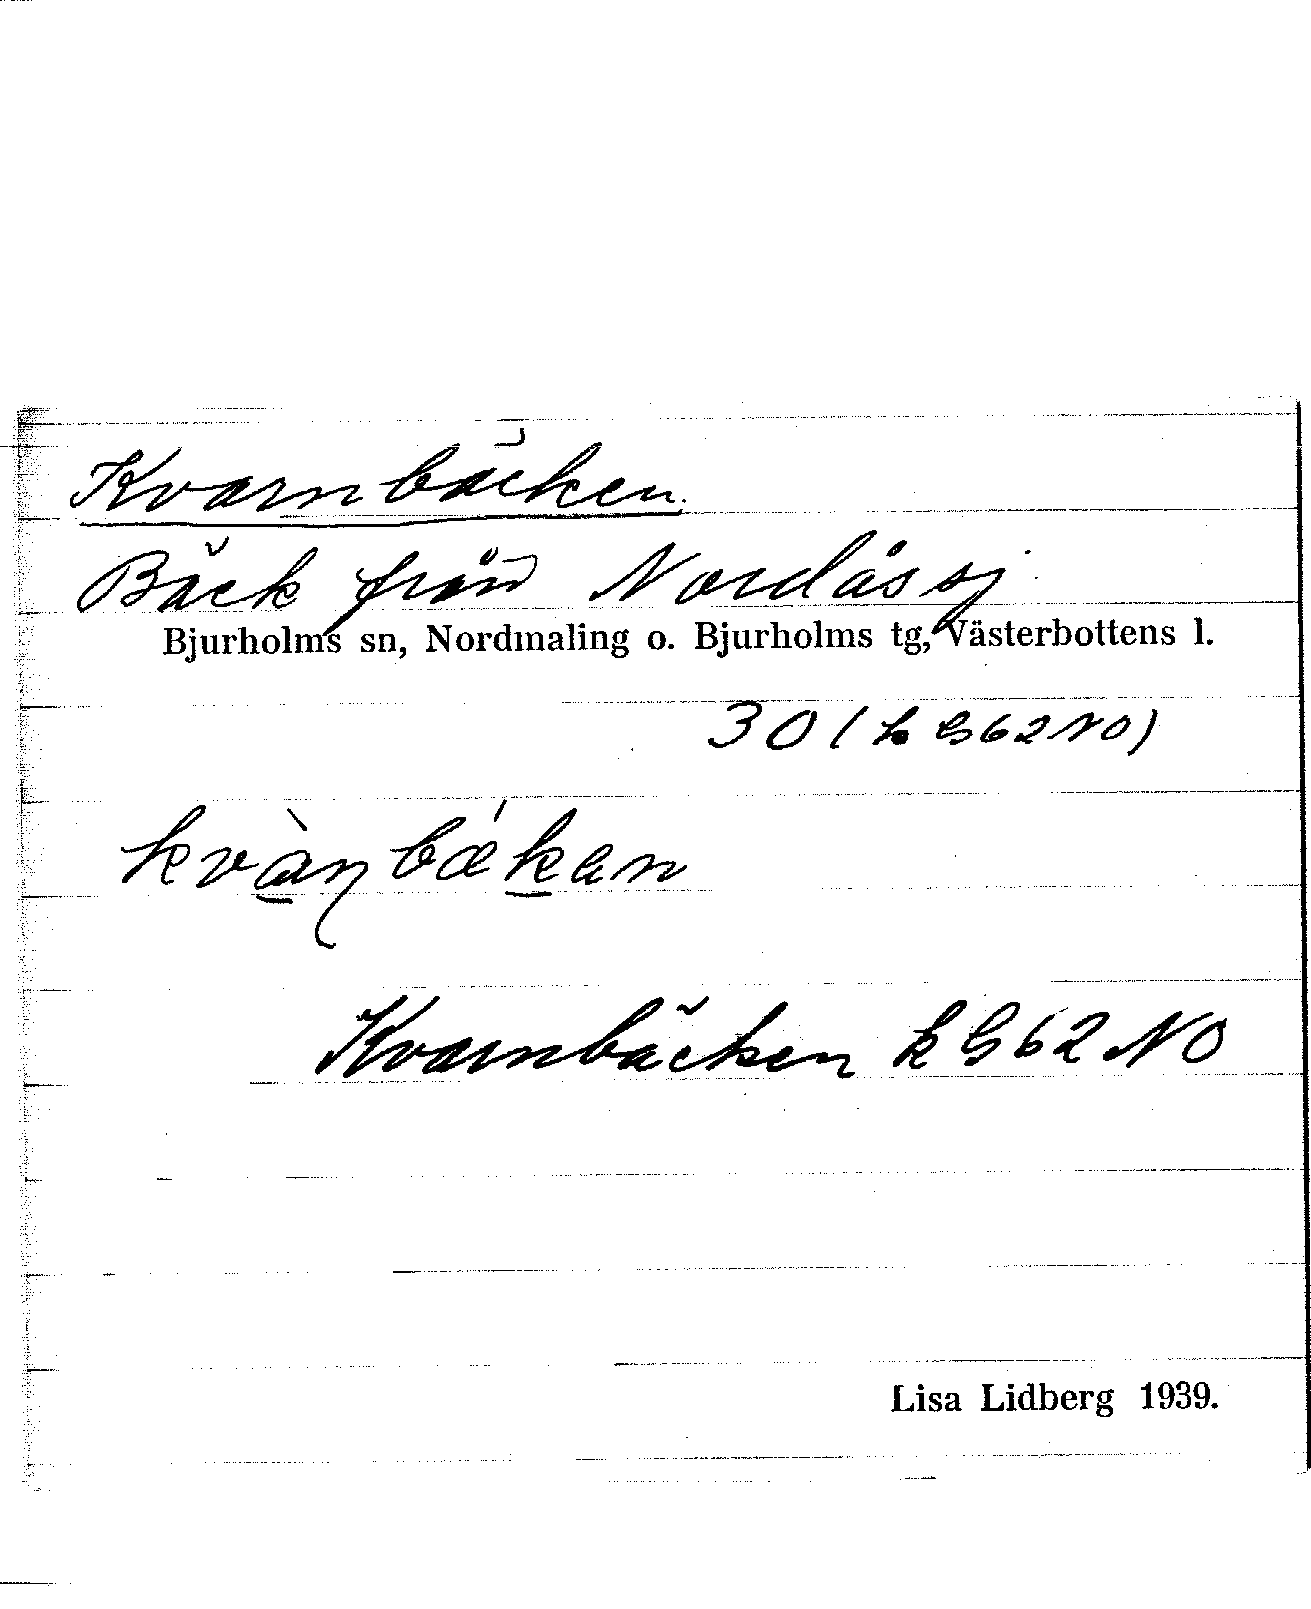 Kvarnbäcken.
Bäck från Nordåssj
Bjurholms sn, Nordmaling o. Bjurholms tg, Västerbottens l.
30 (k G62NO)
kvàṇbǽkan
Kvarnbäcken k G62 NO
Lisa Lidberg 1939.